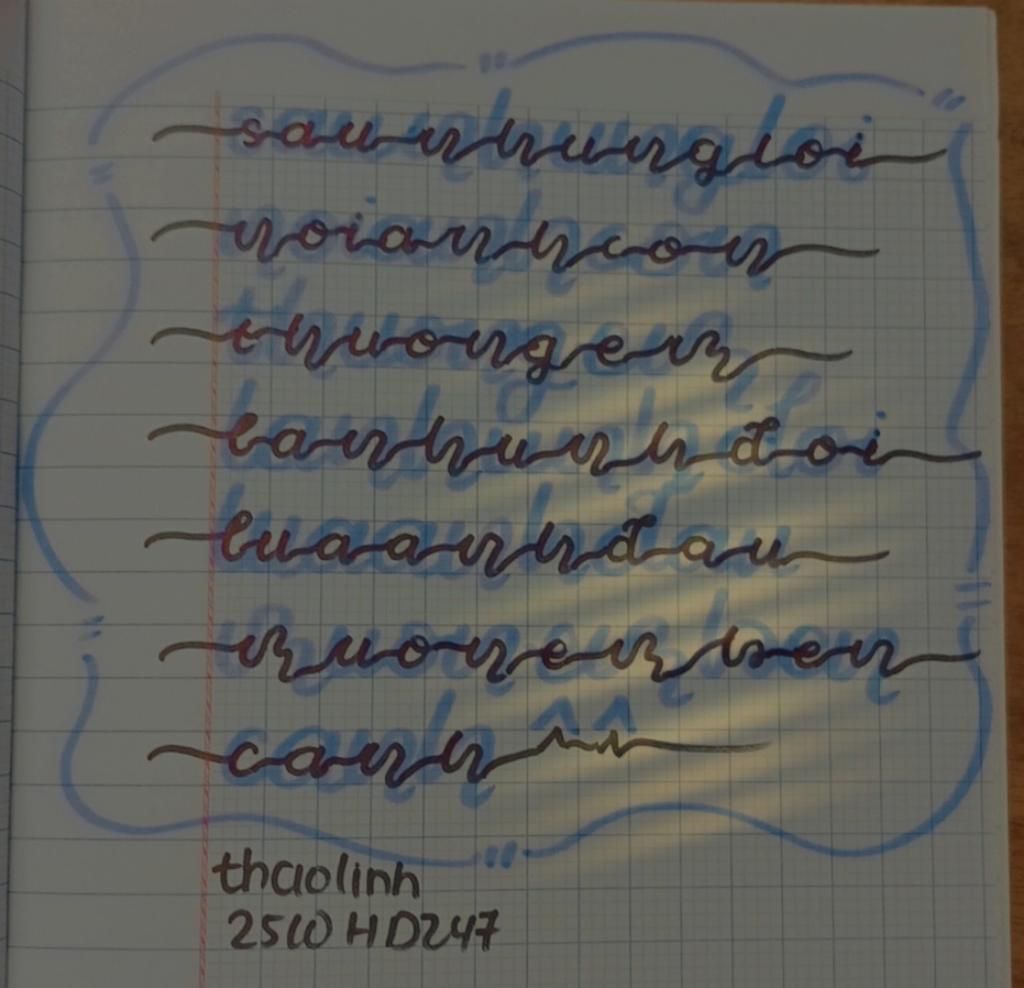 saunhungloi
noianhcon
thuongem
lanhunhđoi
luaanhđau
muonemben
canh ^^
thaolinh
25(1) HD247